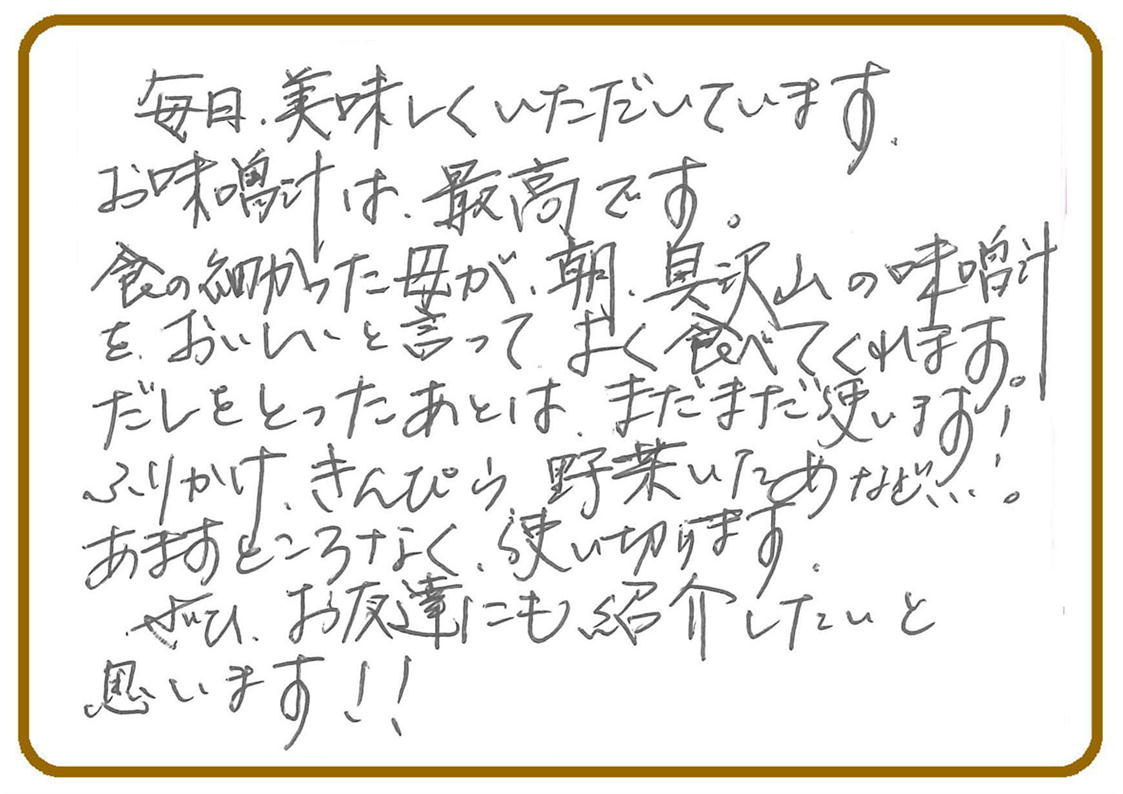 毎日、美味しくいただいています。
お味噌汁は、最高です。
食の細かった母が、朝、具沢山の味噌汁
を、おいしいと言って よく食べてくれます。
だしをとったあとは、まだまだ使います!
ふりかけ、きんぴら、野菜いためなど…。
あますところなく、使い切ります。
ぜひ、お友達にも紹介したいと
思います!!